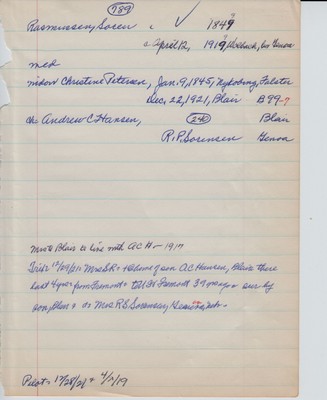 789
Rasmussen, Soren c ✓ 1849
a April 12, 1919,
med
widow Christine Petersen, Jan. 9, 1845, Nykobing, Falster
Dec. 22, 1921, Blair B99-7
ch Andrew C Hansen, 240 Blair
R. P. Sorensen Genoa
to Blair to live with A C H - 1911
12/29/21 Mrs S R + home of son A C Hansen, Blair there
last 4 years from Fremont + sur by
son, Blair + Mrs R S Sorensen,
Pilot = 12/28/21 + 4/2/19